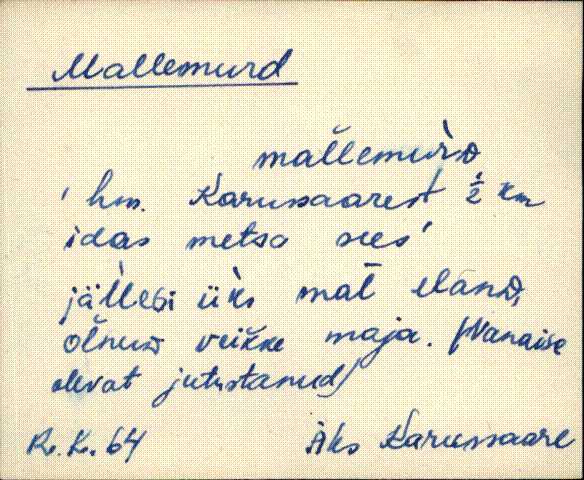 Mallemurd
mal̆lemuŕᴅ
' hm. Karussaarest ½ km
idas metsa sees'
jäl̀leGi ük̀s mat̆ elanᴅ,
ol̆nuᴅ veik̆ke maja. (Vanaise
olevat jutustanud)
R. K. 64 Äks Karussaare